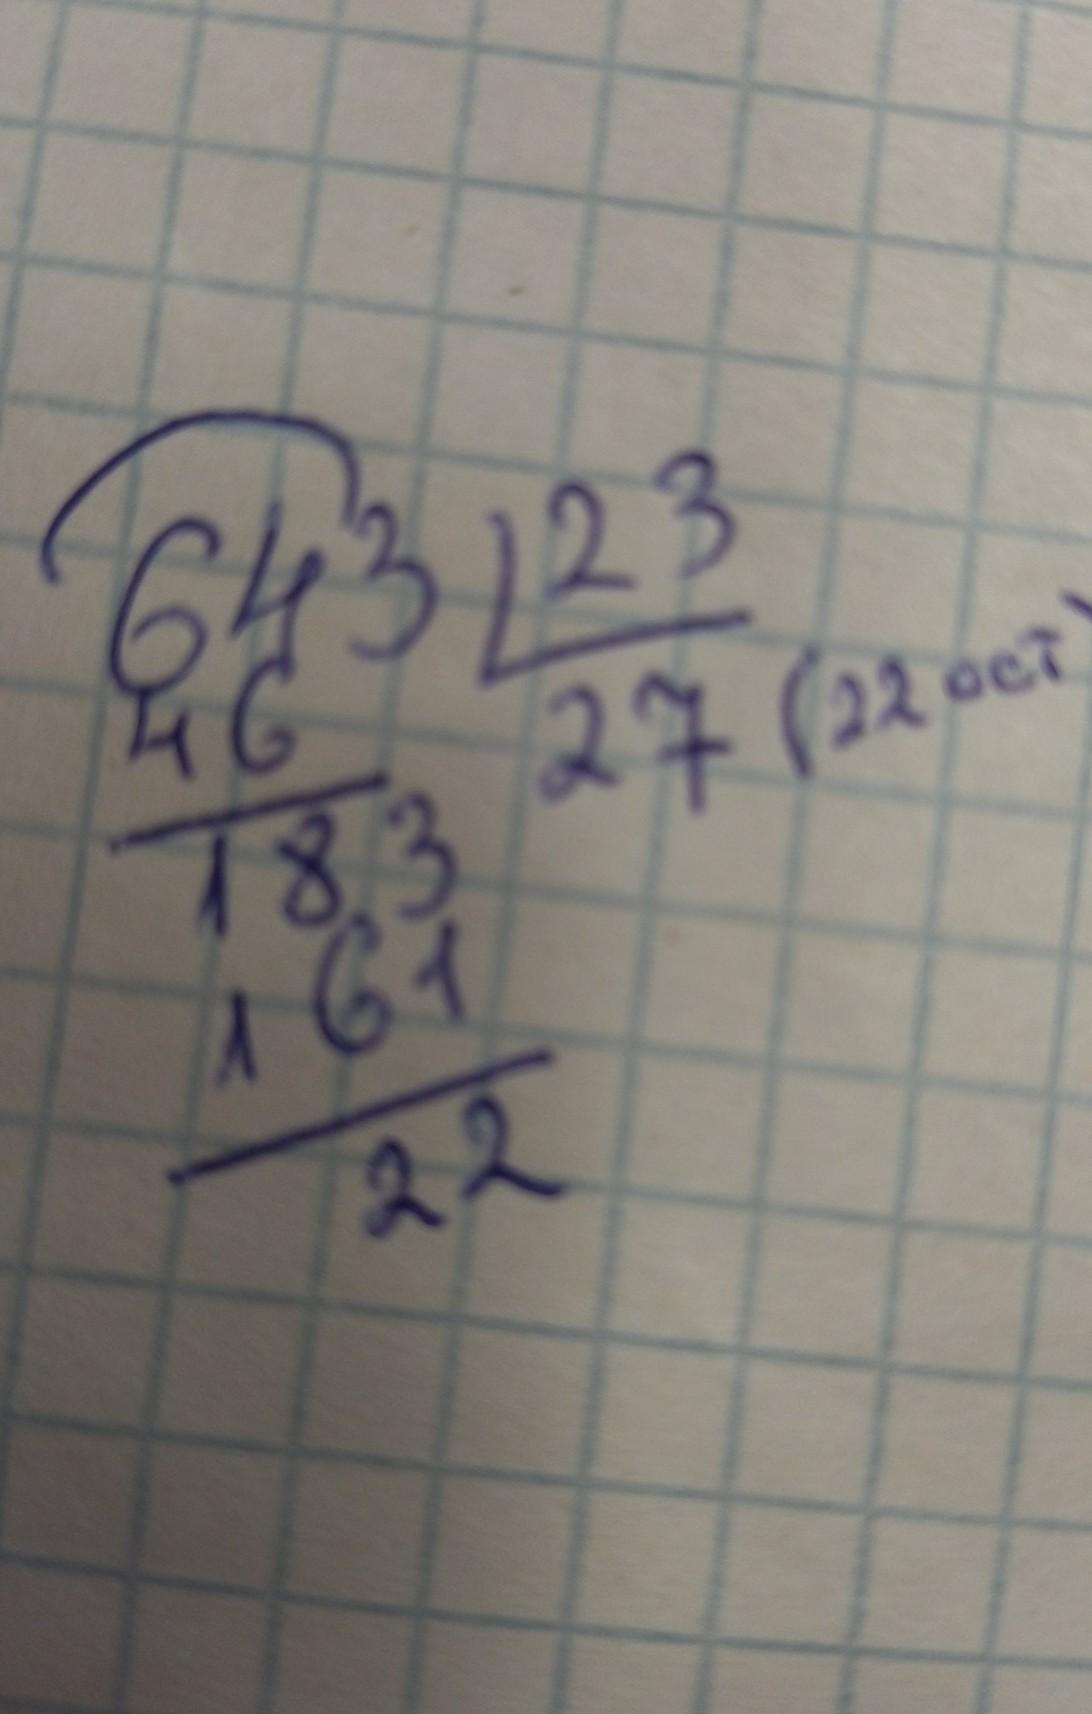 643 23
46 27 (22 ост)
183
161
22